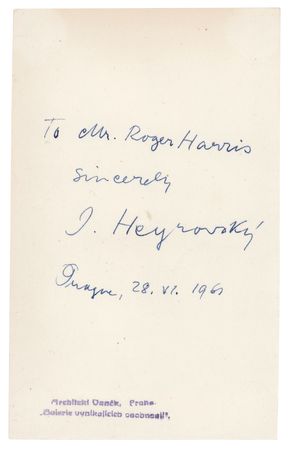 To Mr. Roger Harris
Sincerely
J. Heyrovský
Prague, 28. VI. 1961
Architekt Vaněk, Praha
„Galerie vynikajících osobností",